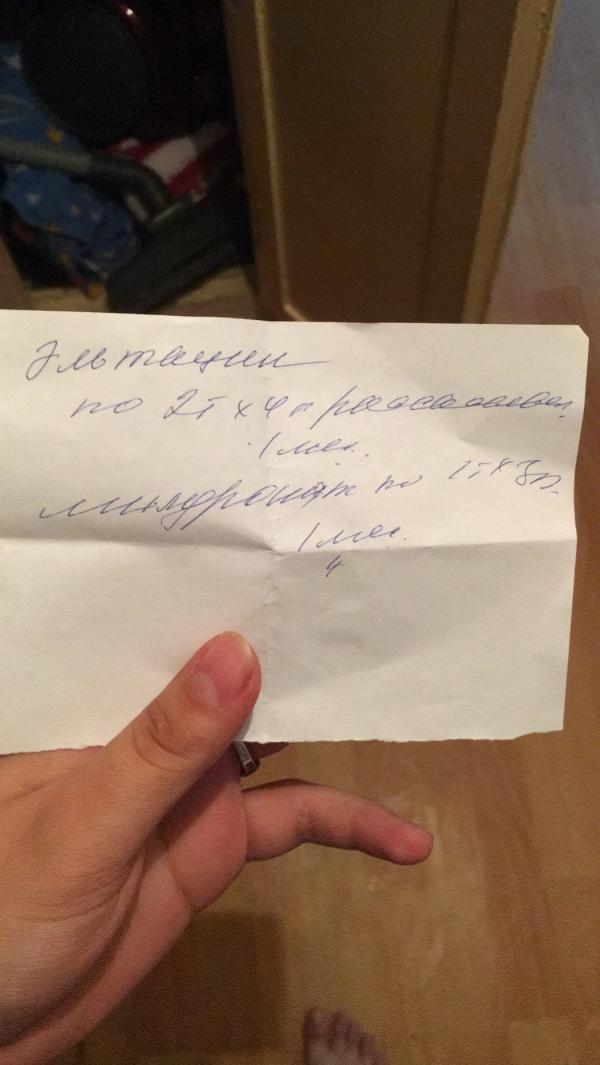 Эльтацин
по 2т х 4 р рассасывать
1 мес.
милдронат по 1т х 3р.
1 мес.
4